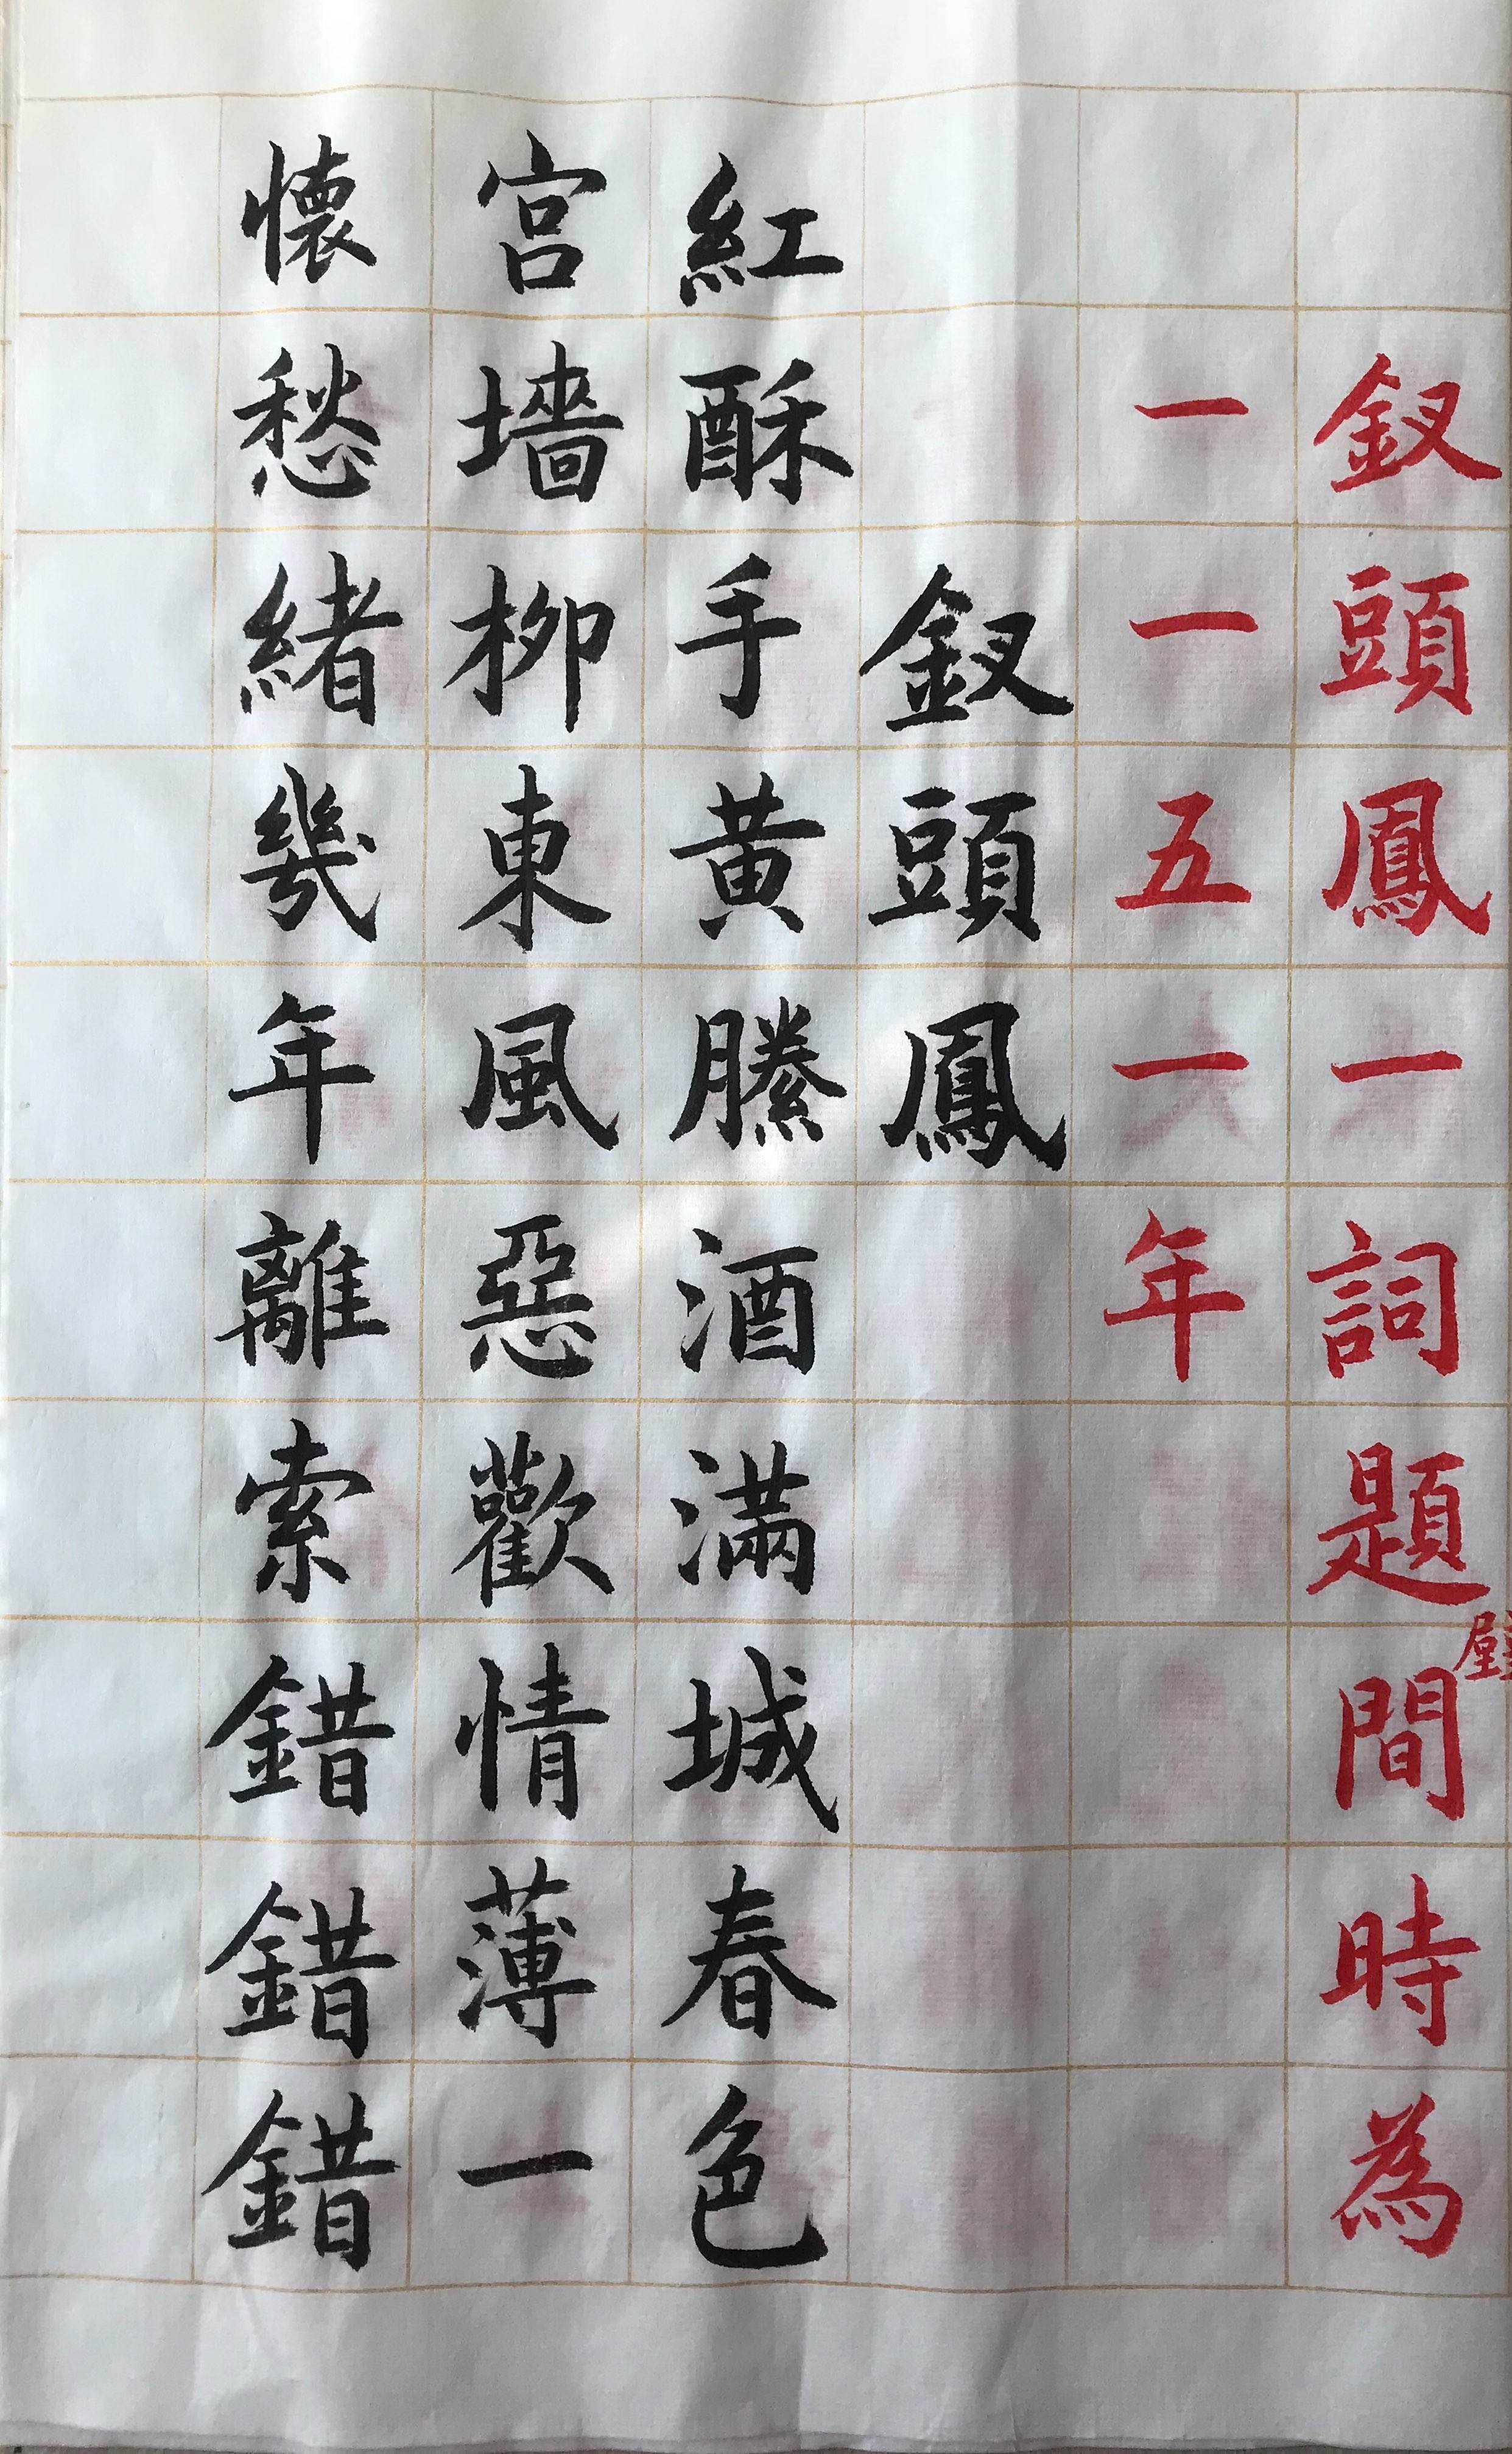 釵頭鳳一詞題壁間時為
一一五一年
釵頭鳳
紅酥手黃縢酒滿城春色
宮墻柳東風惡歡情薄一
懷愁緒幾年離索錯錯錯